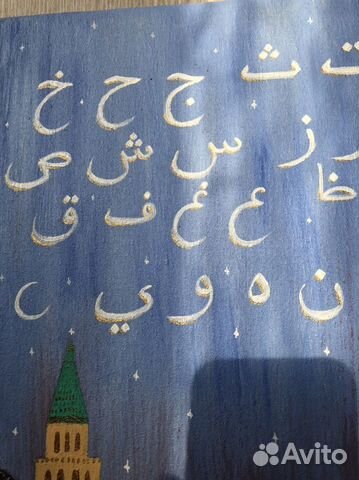 ت ث ج ح خ
ر ز س ش ص
ظ ع غ ف ق
ن ه و ي
Avito